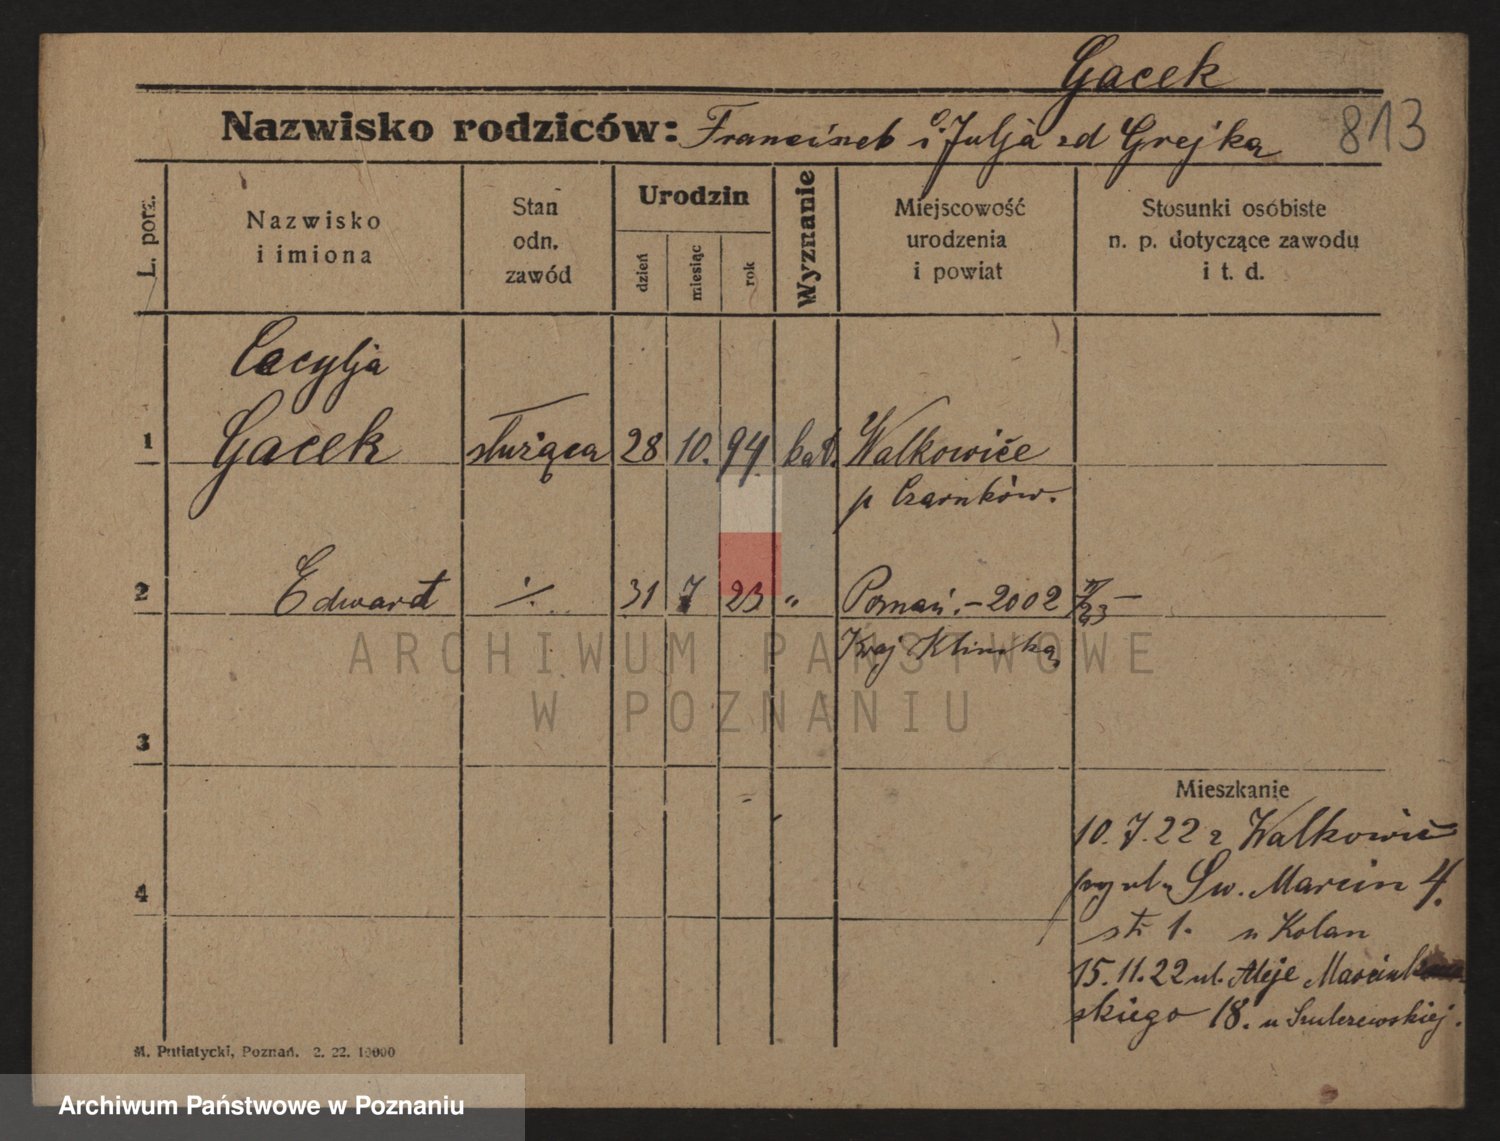 Gacek
Nazwisko rodziców: Franciszek i Julja zd Grejka 813
L. porz.
Nazwisko
i imiona
Stan
odn.
zawód
Urodzin
dzień
miesiąc
rok
Wyznanie
Miejscowość
urodzenia
i powiat
Stosunki osóbiste
n. p. dotyczące zawodu
i t. d.
Cacylja
1 Gacek służąca 28 10. 94. kat. Walkowice
p Czarnków.
2 Edward ·/. 31 7 23 " Poznań. - 2002
Kraj Klinika
3
Mieszkanie
10.7.22 z Walkowic
4
przy ul. Św. Marcin 4.
str 1. u Kolan
15.11.22 ul. Aleje Marcink
skiego 18. u Szulczewskiej.
M. Putiatycki, Poznań. 2. 22. 10000
ARCHIWUM PAŃSTWOWE
W POZNANIU
Archiwum Państwowe w Poznaniu